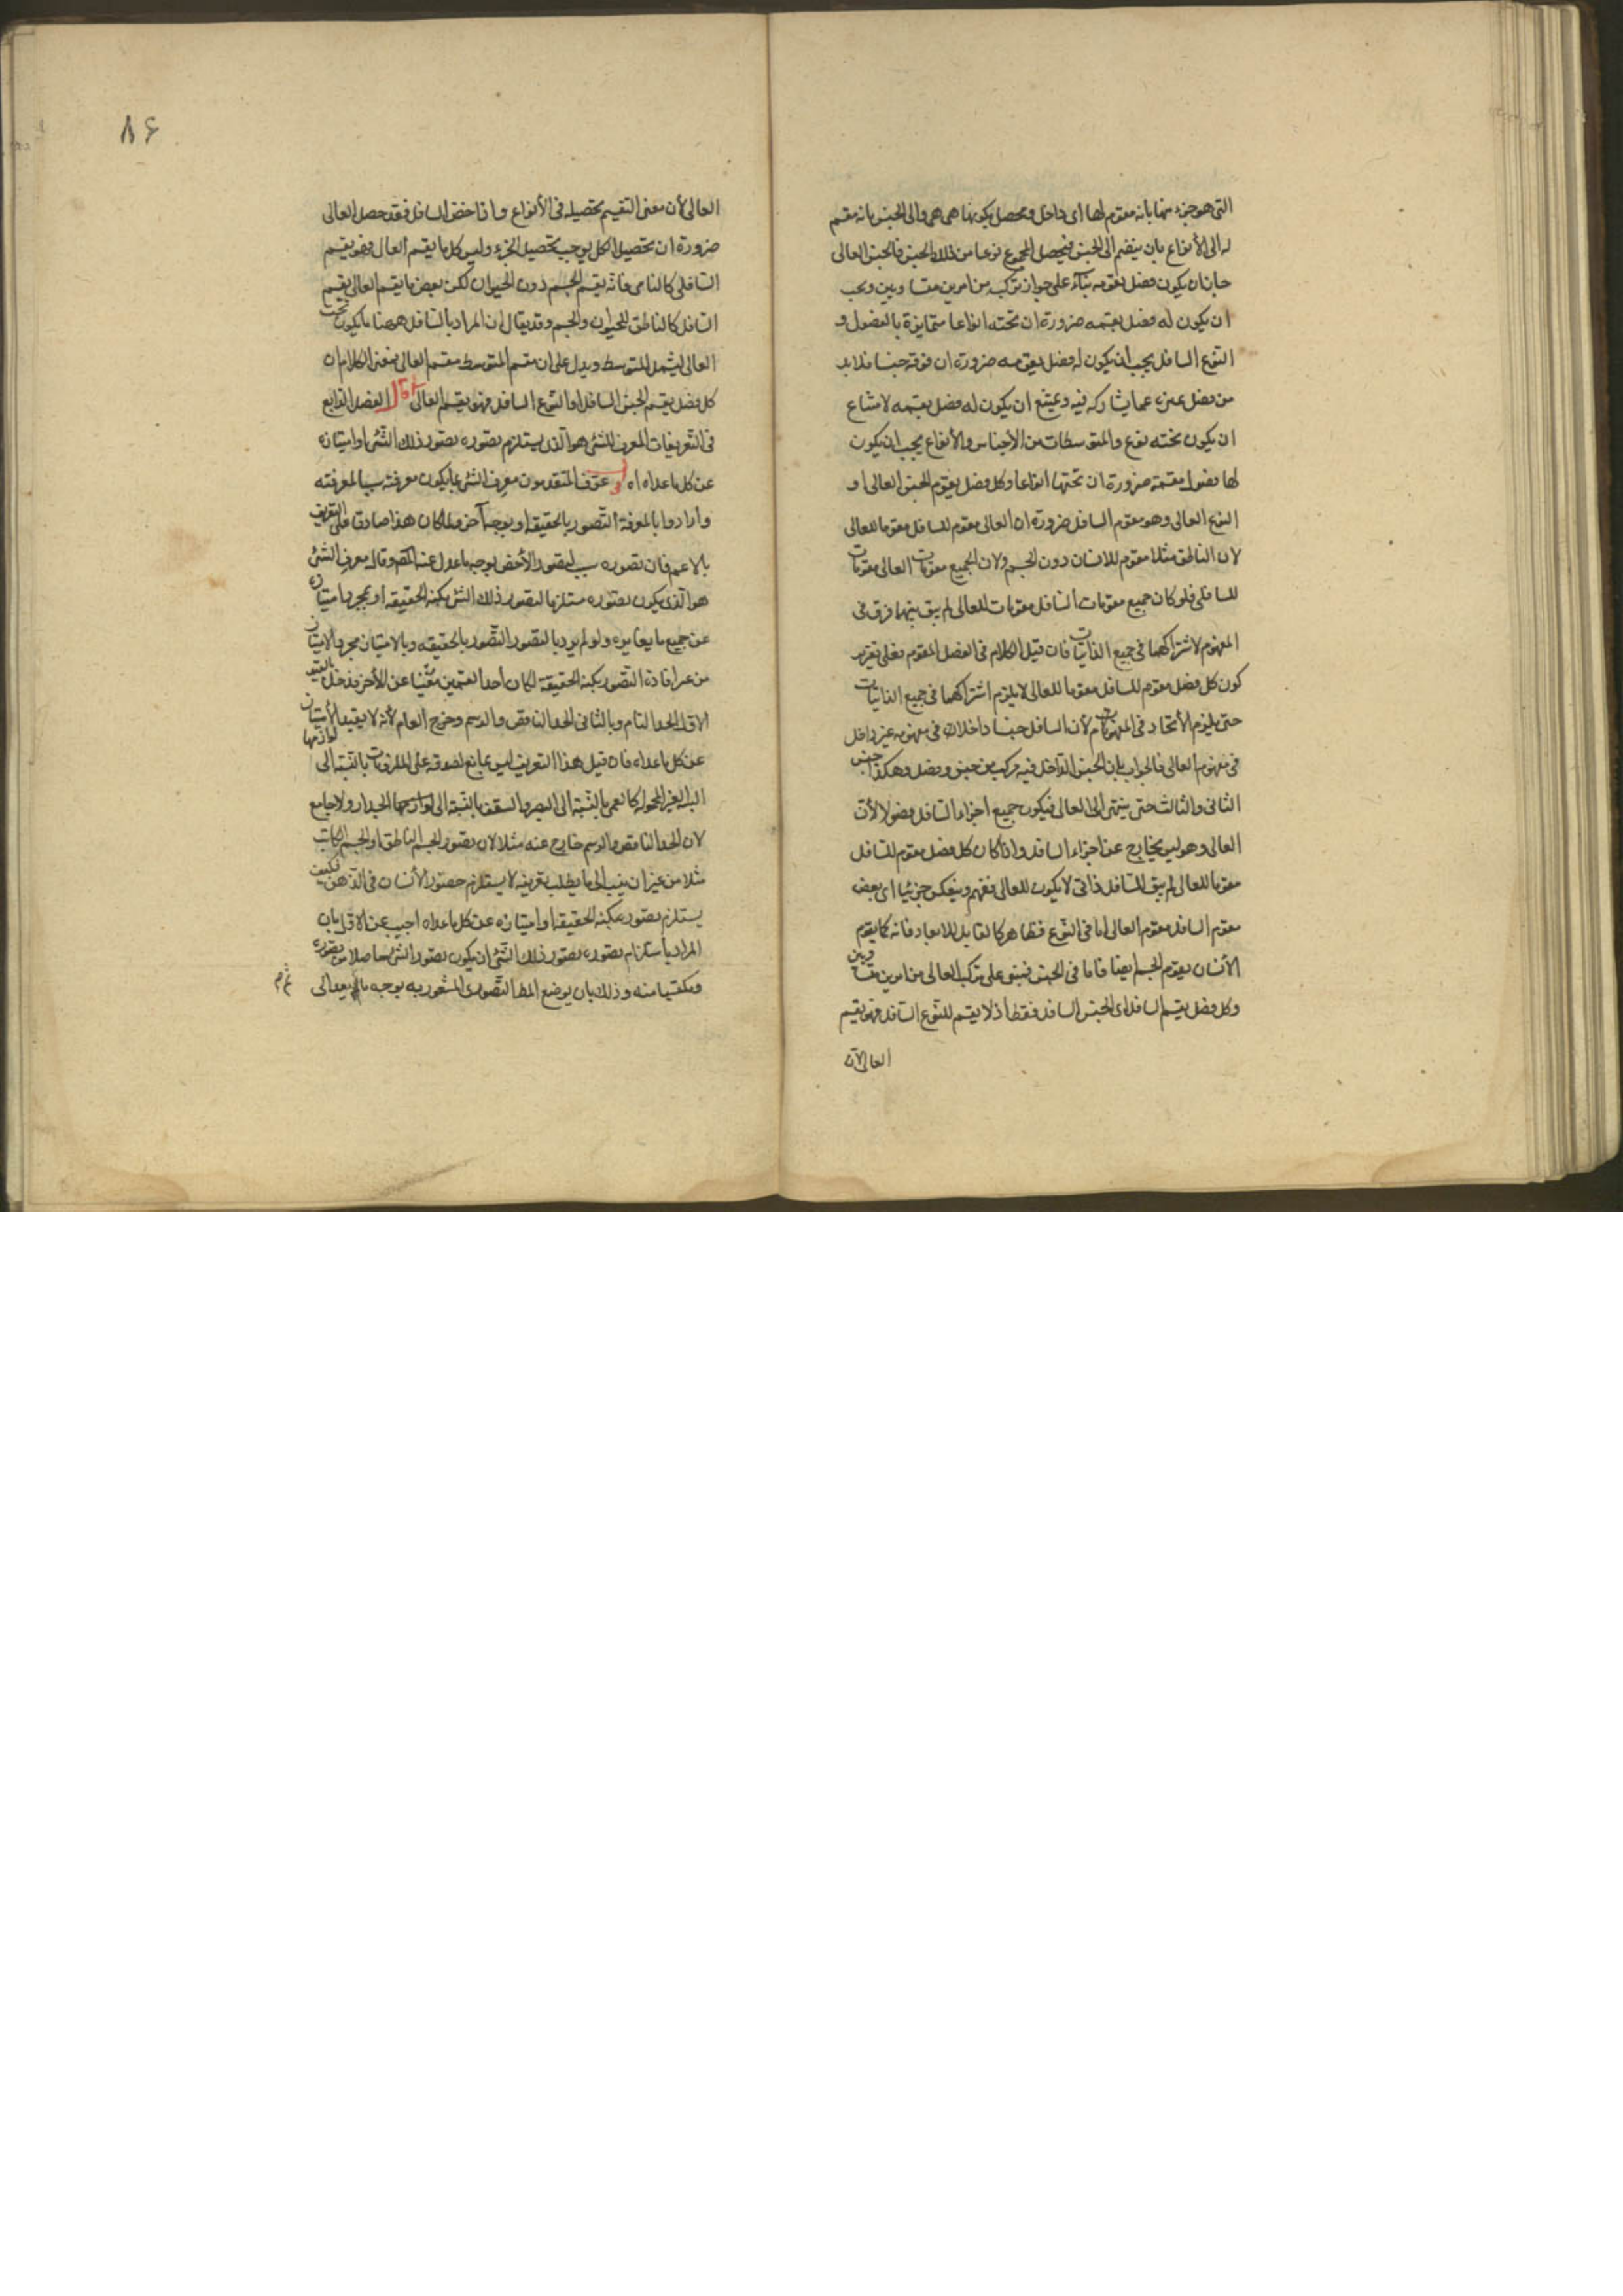 التى هو جزء منها بانه مقوم لها اى داخل ومحصل يكونها هى هى والى الجنس بانه مقسم
له الى الأنواع بان ينضم الى الجنس فيحصل المجموع نوعا من ذلك الجنس فالجنس العالى
جاز ان يكون فصل يقومه بنآء على جواز تركبه من امرين متساويين ويجب
ان يكون له فصل يقسمه ضرورة ان تحته انواعا متمايزة بالفصول و
النوع السافل يجب ان يكون له فصل يقومه ضرورة ان فوقه جنسا فلا بد
من فصل يميزه عما يشاركه فيه ويمتنع ان يكون له فصل يقسمه لامتناع
ان يكون تحته نوع والمتوسطات من الأجناس والأنواع يجب ان يكون
لها فصول مقسمة ضرورة ان تحتها انواعا وكل فصل يقوم الجنس العالى او
النوع العالى وهو مقوم السافل ضرورة ان العالى مقوم للسافل مقوما للعالى
لان الناطق مثلا مقوم للانسان دون الجسم ولان الجميع مقومات العالى مقومات
للسافل فلو كان جميع مقومات السافل مقومات للعالى لم يبق بينهما فرق فى
المفهوم لاشتراكهما فى جميع الذاتيات فان قيل الكلام فى الفصل المقوم فعلى تقرير
كون كل فصل مقوم للسافل مقوما للعالى لا يلزم اشتراكهما فى جميع الذاتيات
حتى يلزم الأتحاد فى المفهوم لأن السافل جنسا داخلا فى مفهومه غير داخل
فى مفهوم العالى فالجواب بان الجنس الداخل فيه مركب من جنس وفصل وهكذا جنس
الثانى والثالث حتى ينتهى الى العالى فيكون جميع اجزاء السافل فصولا لأن
العالى وهو ليس بخارج عن اجزاء السافل واذا كان كل فصل مقوم للسافل
مقوما للعالى لم يبق للسافل ذاتى لا يكون للعالى فافهم وينعكس جزئيا اى بعض
مقوم السافل مقوم العالى اما فى النوع فظاهر كالقابل للابعاد فانه كما يقوم
الأنسان يقوم الجسم ايضا فاما فى الجنس فيبنى على تركب العالى من امرين متساويين
وكل فصل يقسم السافل اى الجنس السافل فقط اذ لا يقسم للنوع السافل فهو يقسم
العالى لآن
٨۶
العالى لأن معنى التقسيم تحصيله فى الأنواع واذا السافل فقد حصل العالى
ضرورة ان تحصيل الكل يوجب تحصيل الجزء وليس كل ما يقسم العالى فهو يقسم
السافل كالنامى فانه يقسم الجسم دون الحيوان لكن بعض ما يقسم العالى يقسم
السافل كالناطق للحيوان والجسم وقد يقال ان المراد بالسافل ههنا ما يكون تحت
العالى ليشمل المتوسط ويدل على ان مقسم المتوسط مقسم العالى فمعنى الكلام ان
كل فصل يقسم الجنس السافل او النوع السافل فهو يقسم العالى قال الفصل الرابع
فى التعريفات المعرف للشئ هو الذى يستلزم تصوره تصور ذلك الشئ او امتيازه
عن كل ما عداه اه عرف المتقدمون معرف الشئ بما يكون معرفته سببا لمعرفته
وارادوا بالمعرفة التصور بالحقيقة او بوجه آخر ولما كان هذا صادقا على التعريف
بالاعم فان تصوره سبب لتصور الأخص بوجه ما عدل عنه المص وقال معرف الشئ
هو الذى يكون تصوره مستلزما لتصور ذلك الشئ بكنه الحقيقه او بمجرد امتيازه
عن جميع ما يغايره ولو لم يرد بالتصور التصور بالحقيقه وبالامتياز مجرد الامتياز
من غير افادة التصور بكنه الحقيقة لكان أحد القسمين مغنيا عن الأخر فدخل بالقيد
الاول الحد التام وبالثانى الحد الناقص والرسم وخرج العام لأنه لا يفيد الأمتياز
عن كل ما عداه فان قيل هذا التعريف ليس بمانع لصدقه على الملزومات بالنسبة الى لوازمها
البينة الغير المحموله كالعمى بالنسبة الى البصر والسقف بالنسبة الى الجدار ولا جامع
لان الحد الناقص والرسم خارج عنه مثلا لان تصور الجسم الناطق او الجسم الكاتب
مثلا من غير ان ينسب الى ما يطلب تعريفه لا يستلزم حصور الأنسان فى الذهن فكيف
يستلزم تصور بكنه الحقيقة او امتيازه عن كل ما عداه اجيب عن الاول بان
المراد باستلزام تصوره تصور ذلك الشئ ان يكون تصور الشئ حاصلا من تصوره
ومكتسبا منه وذلك بان يوضع المط التصورى المشعور به بوجه ما